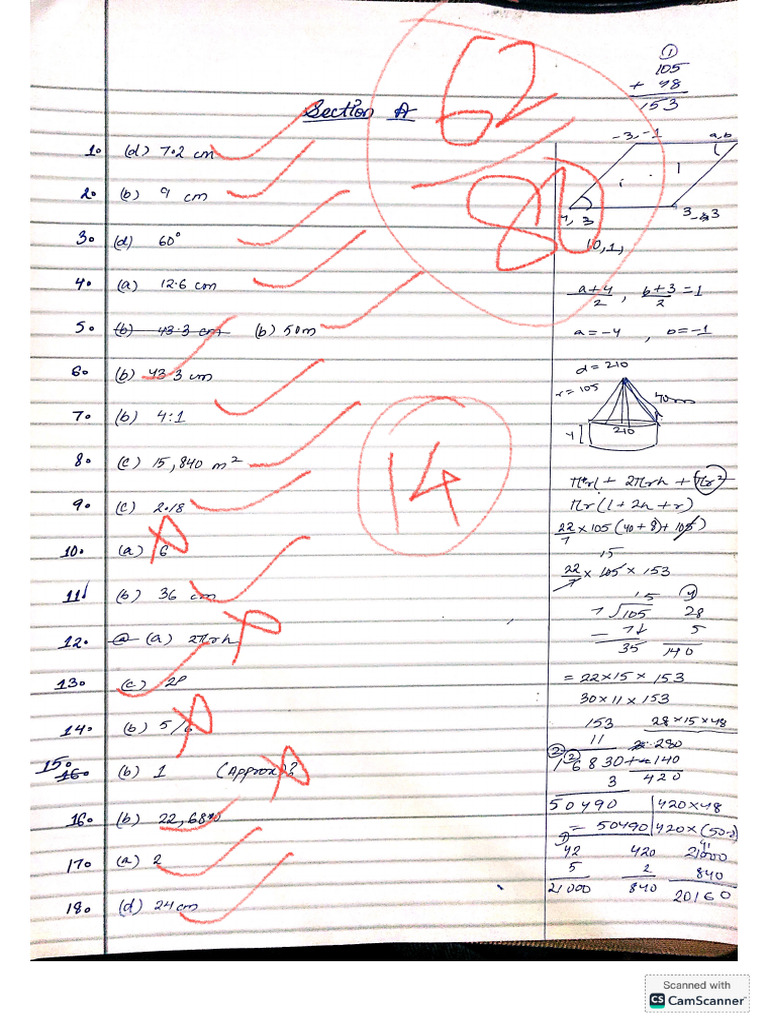 62
80
Section A
1. (d) 7.2 cm
2. (b) 9 cm
3. (d) 60°
4. (a) 12.6 cm
5. (b) 43.3 cm (b) 50m
6. (b) 43.3 cm
7. (b) 4:1
8. (c) 15,840 m²
9. (c) 2.18
10. (a) 6
11. (b) 36 cm
12. (a) 2πrh
13. (c) 20
14. (b) 5/6
15. (b) 1 (Approx)?
16. (b) 22,680
17. (a) 2
18. (d) 24cm
14
1
105
+ 48
153
-3,-1 a,b
3
10,1,
a+4/2 , b+3/2 = 1
a=-4 , b=-1
d=210
r=105
40m
4 210
πrl + 2πrh + πr²
πr(l+2h+r)
22/7 × 105(40+8)+105)
15
22/7 × 105 × 153
15 4
7 105 28
- 7↓ 5
35 140
= 22×15×153
30×11×153
153 28×15×48
11 280
1 6 8 30 + 140
3 420
50490 420×48
= 50490 420×(50-2)
42 420 21000
5 2 840
21000 840 20160
Scanned with
CS CamScanner